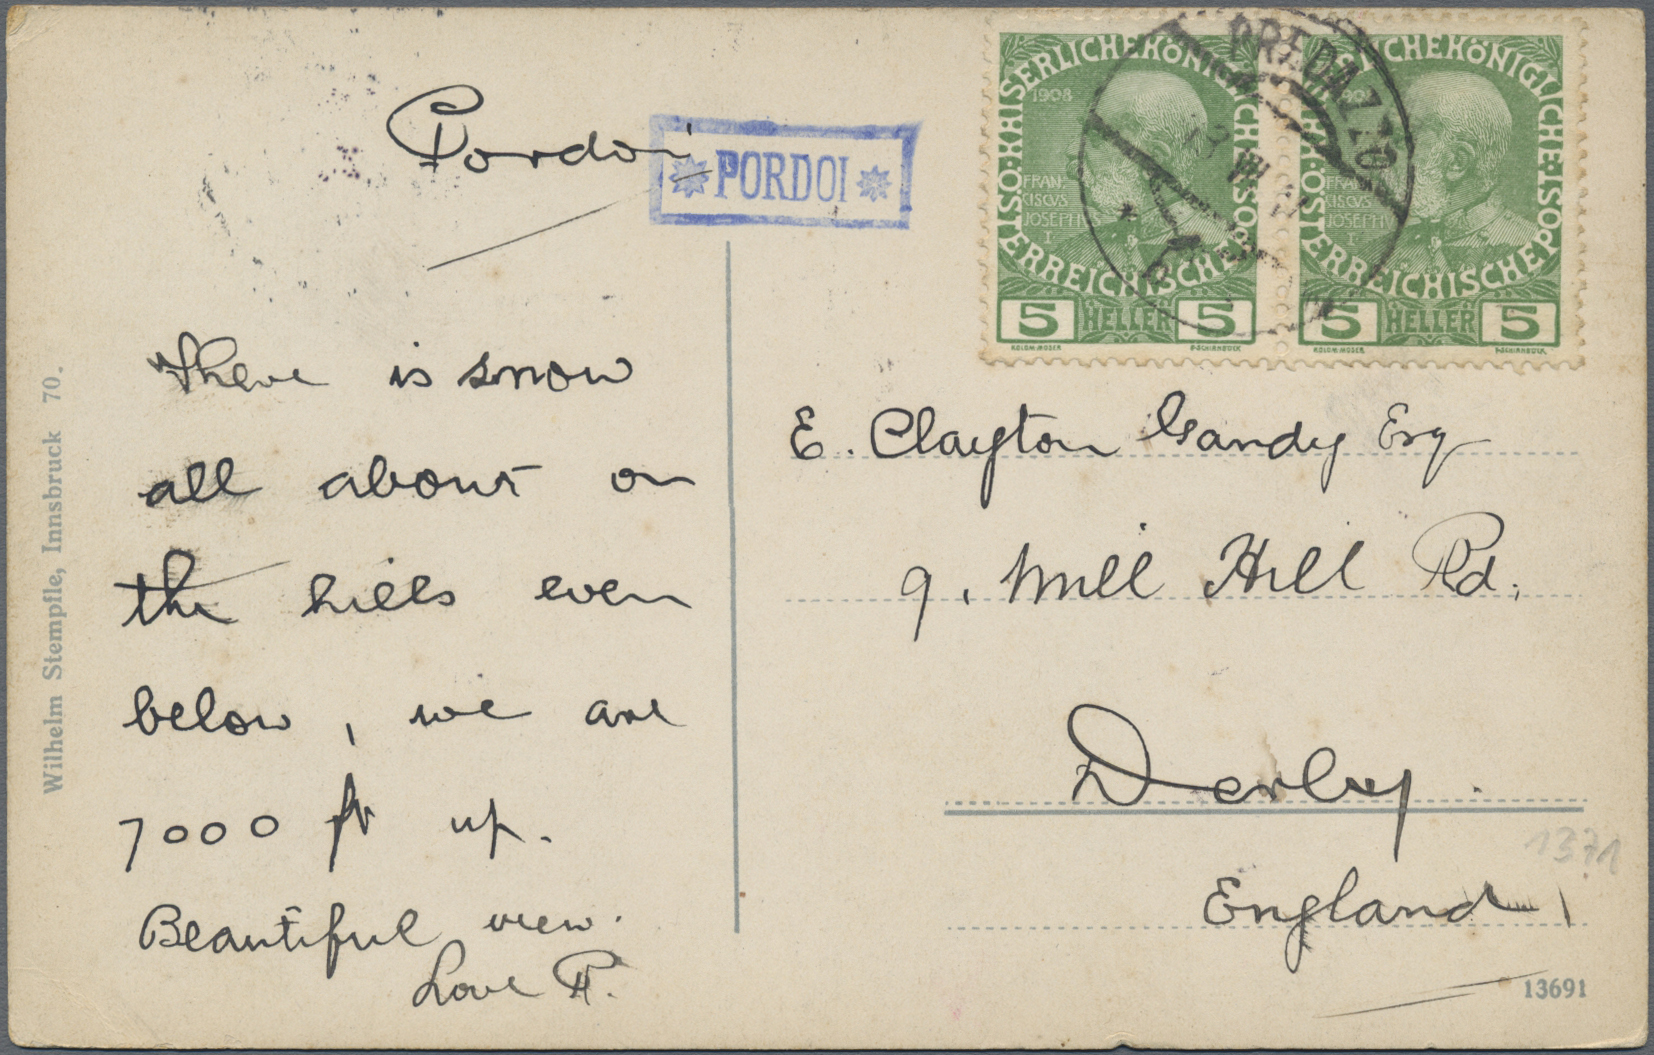 Pordoi
PORDOI
There is snow
all about on
the hills even
below, we are
7000 ft up.
Beautiful view.
Love P.
Wilhelm Stempfle, Innsbruck 70.
KAISERLICHEKÖNIGLICHE ÖSTERREICHISCHE POST
1908
FRAN
CISCVS
JOSEPHVS
I
5 HELLER 5
KOLOM.MOSER F.SCHIRNBÖCK
KAISERLICHEKÖNIGLICHE ÖSTERREICHISCHE POST
1908
FRAN
CISCVS
JOSEPHVS
I
5 HELLER 5
KOLOM.MOSER F.SCHIRNBÖCK
PREDAZZO
E. Clayton Gandy Esq
9, Mill Hill Rd,
Derby.
England
1371
13691